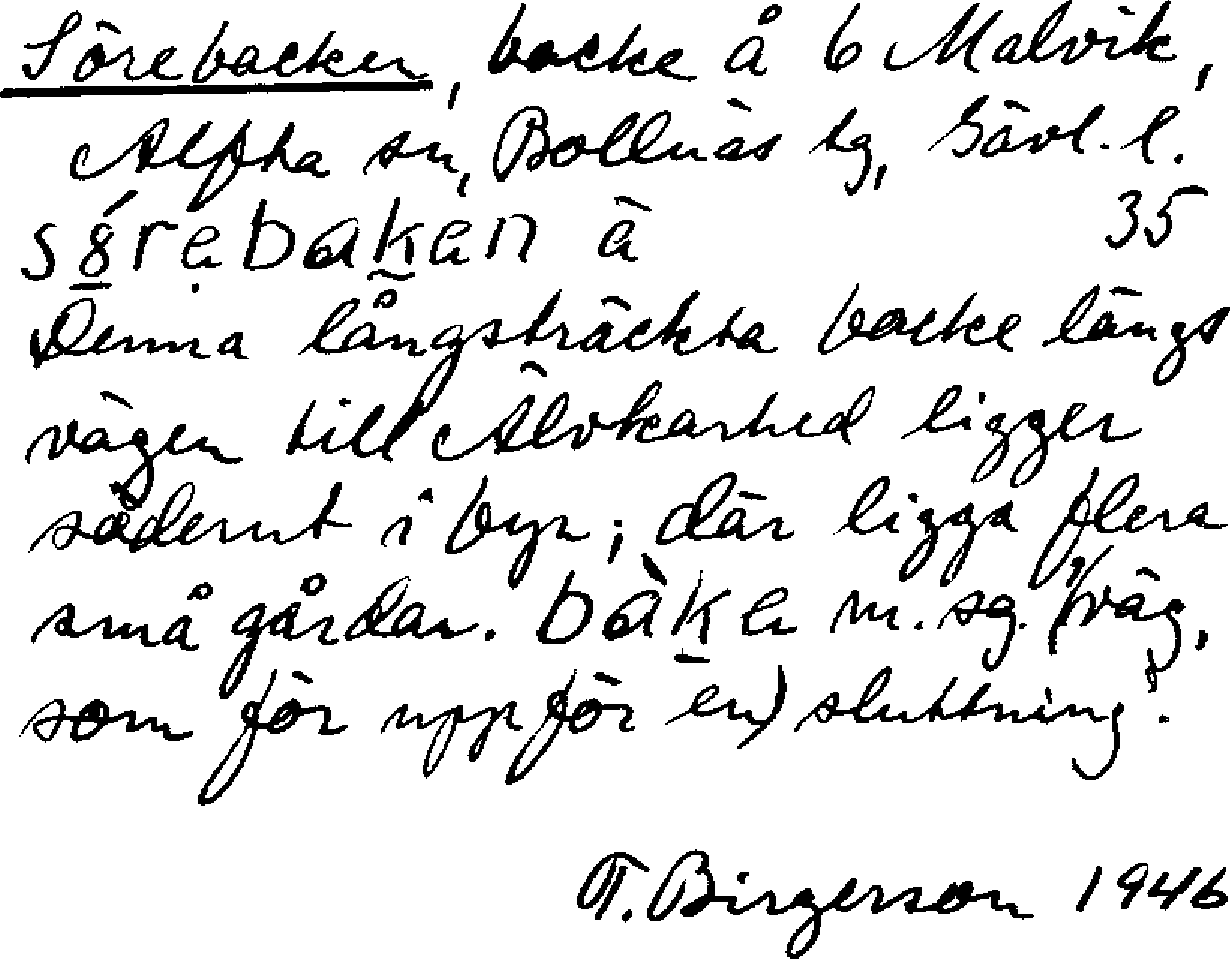 Sörebacken, backe å 6 Malvik,
Alfta sn, Bollnäs tg, Gävl. l.
sörebaken ä 35
Denna långsträckta backe längs
vägen till Älvkarhed ligger
söderut i byn; där ligga flera
små gårdar. bàke m. sg. '(väg,
som för uppför en) sluttning'.
T. Birgerson 1946